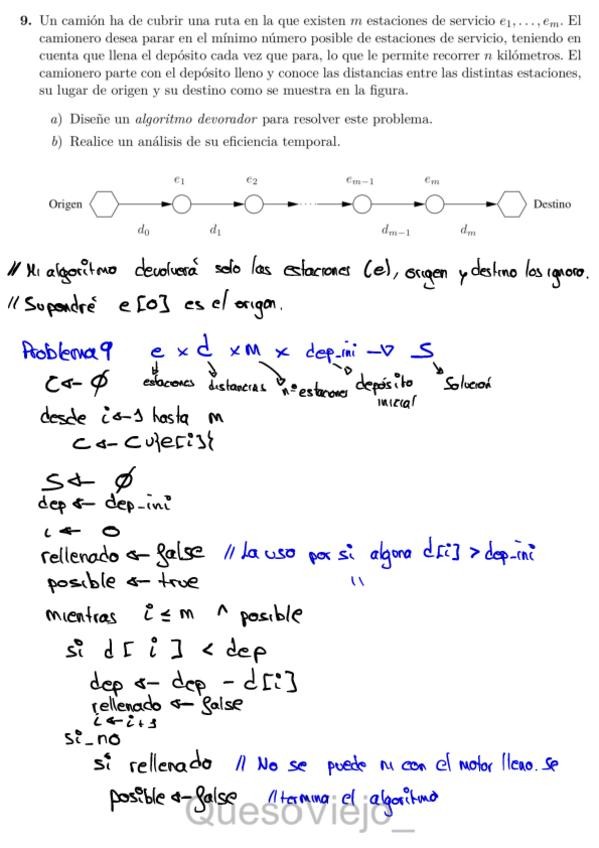 9. Un camión ha de cubrir una ruta en la que existen m estaciones de servicio e₁, . . . , eₘ. El
camionero desea parar en el mínimo número posible de estaciones de servicio, teniendo en
cuenta que llena el depósito cada vez que para, lo que le permite recorrer n kilómetros. El
camionero parte con el depósito lleno y conoce las distancias entre las distintas estaciones,
su lugar de origen y su destino como se muestra en la figura.
a) Diseñe un algoritmo devorador para resolver este problema.
b) Realice un análisis de su eficiencia temporal.
e₁ e₂ eₘ₋₁ eₘ
Origen ····· Destino
d₀ d₁ dₘ₋₁ dₘ
// Mi algoritmo devolverá solo las estaciones (e), origen y destino los ignoro.
// Supondré e[0] es el origen.
Problema9 e x d x m x dep_ini → S
C ← ∅ estaciones distancias nº estaciones depósito inicial Solución
desde i ← 1 hasta m
C ← C ∪ {e[i]}
S ← ∅
dep ← dep_ini
i ← 0
rellenado ← false // La uso por si alguna d[i] > dep_ini
posible ← true "
mientras i ≤ m ∧ posible
si d[i] < dep
dep ← dep - d[i]
rellenado ← false
i ← i+1
si_no
si rellenado // No se puede ni con el motor lleno. Se
posible ← false // termina el algoritmo
QuesoViejo_